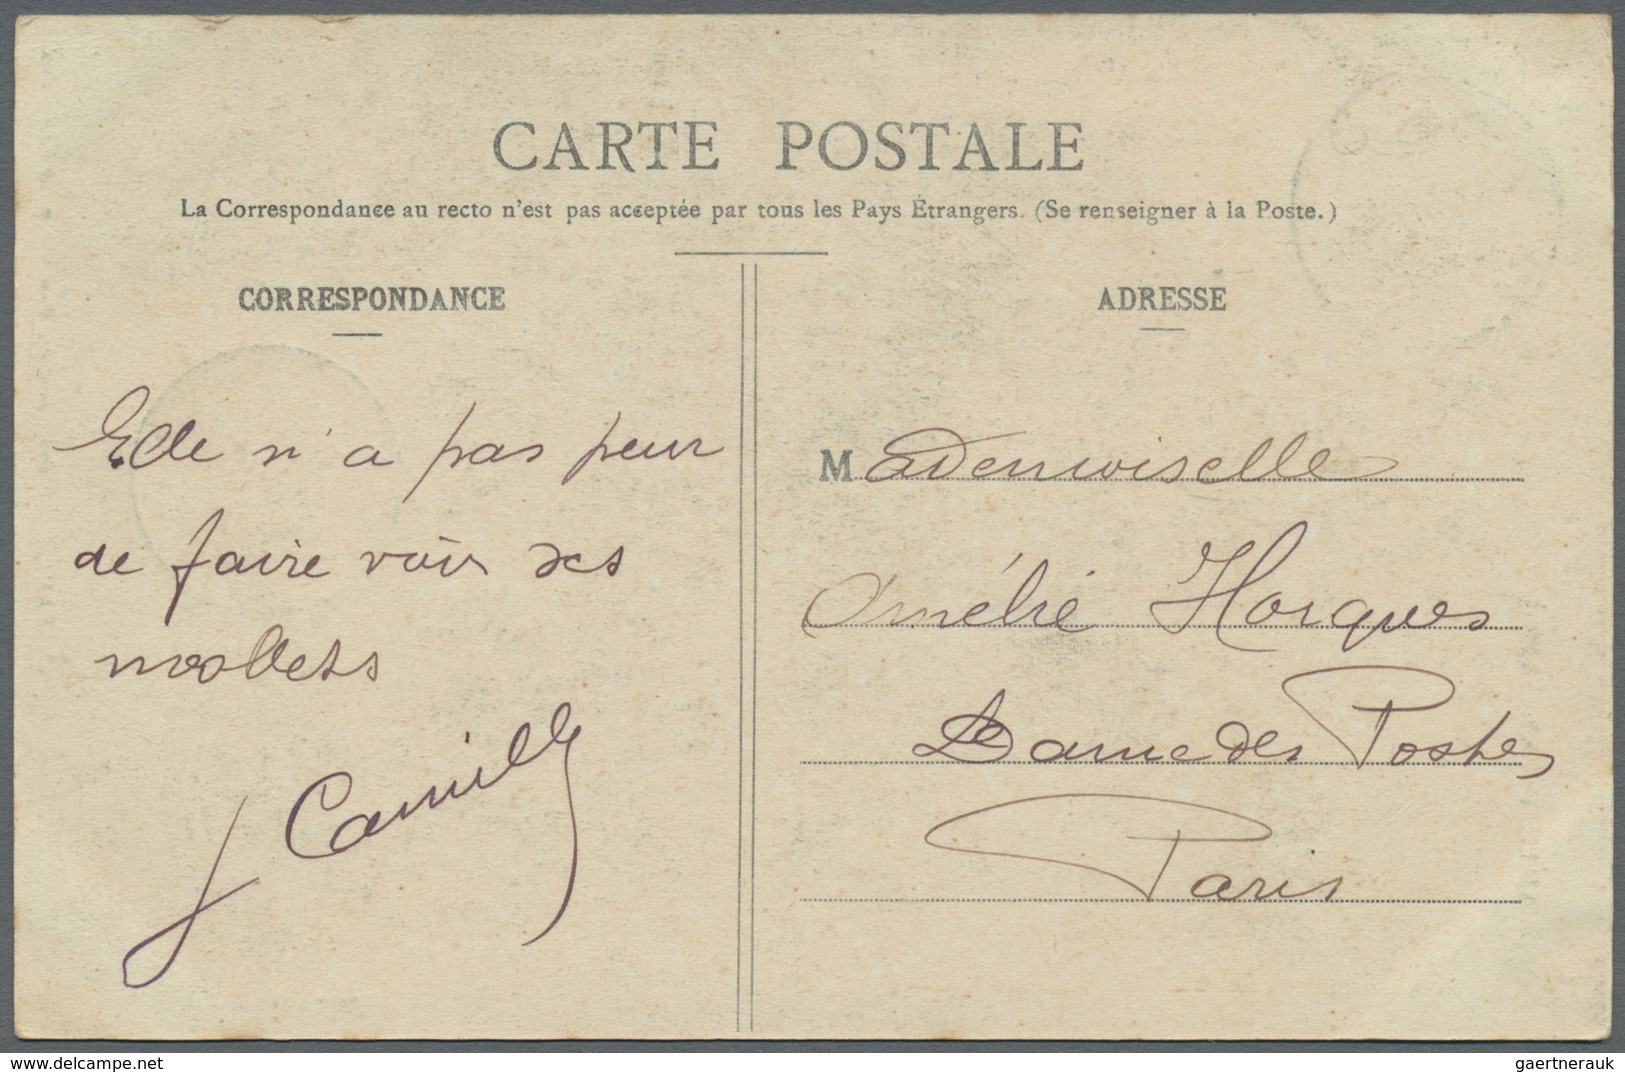 CARTE POSTALE
La Correspondance au recto n'est pas acceptée par tous les Pays Étrangers. (Se renseigner à la Poste.)
CORRESPONDANCE
Elle n'a pas peur
de faire voir ses
mollets
J Camille
ADRESSE
Mademoiselle
Amélie Horques
Dame des Postes
Paris
the-saleroom.com
gaertnerauk